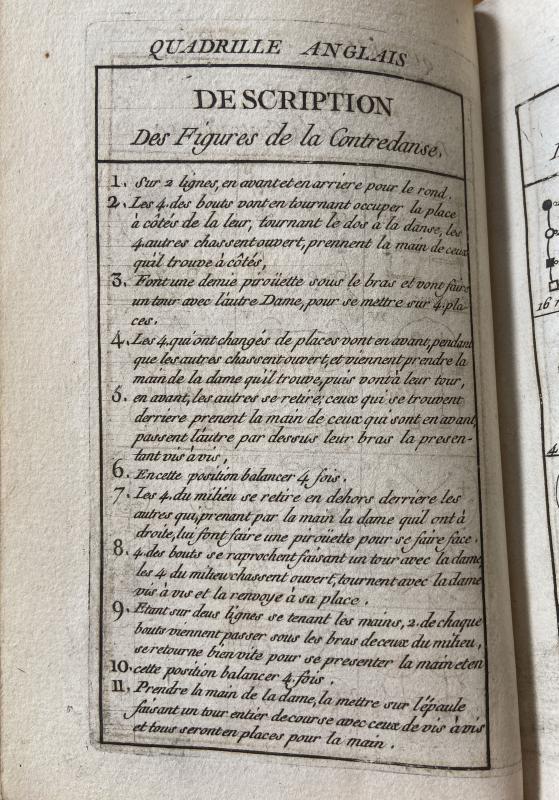 QUADRILLE ANGLAIS
DESCRIPTION
Des Figures de la Contredanse.
1. Sur 2 lignes, en avant et en arriere pour le rond.
2. Les 4. des bouts vont en tournant occuper la place
à côtés de la leur, tournant le dos à la danse, les
4. autres chassent ouvert, prennent la main de ceux
qu'il trouve à côtés,
3. Font une demie piroüette sous le bras et vont faire
un tour avec l'autre Dame, pour se mettre sur 4. pla-
ces.
4. Les 4. qui ont changés de places vont en avant, pendant
que les autres chassent ouvert, et viennent prendre la
main de la dame qu'il trouve, puis vont à leur tour,
5. en avant, les autres se retire; ceux qui se trouvent
derriere prenent la main de ceux qui sont en avant,
passent l'autre par dessus leur bras la presen-
tant vis à vis,
6. En cette position balancer 4 fois.
7. Les 4. du milieu se retire en dehors derriere les
autres qui, prenant par la main la dame quil ont à
droite, lui font faire une piroüette pour se faire face.
8. 4. des bouts se raprochent faisant un tour avec la dame
les 4 du milieu chassent ouvert, tournent avec la dame
vis à vis et la renvoye à sa place.
9. Etant sur deus lignes se tenant les mains, 2. de chaque
bouts viennent passer sous les bras de ceux du milieu,
se retourne bien vite pour se presenter la main et en
10. cette position balancer 4. fois.
11. Prendre la main de la dame, la mettre sur l'épaule
faisant un tour entier de course avec ceux de vis à vis
et tous seront en places pour la main.
16
4